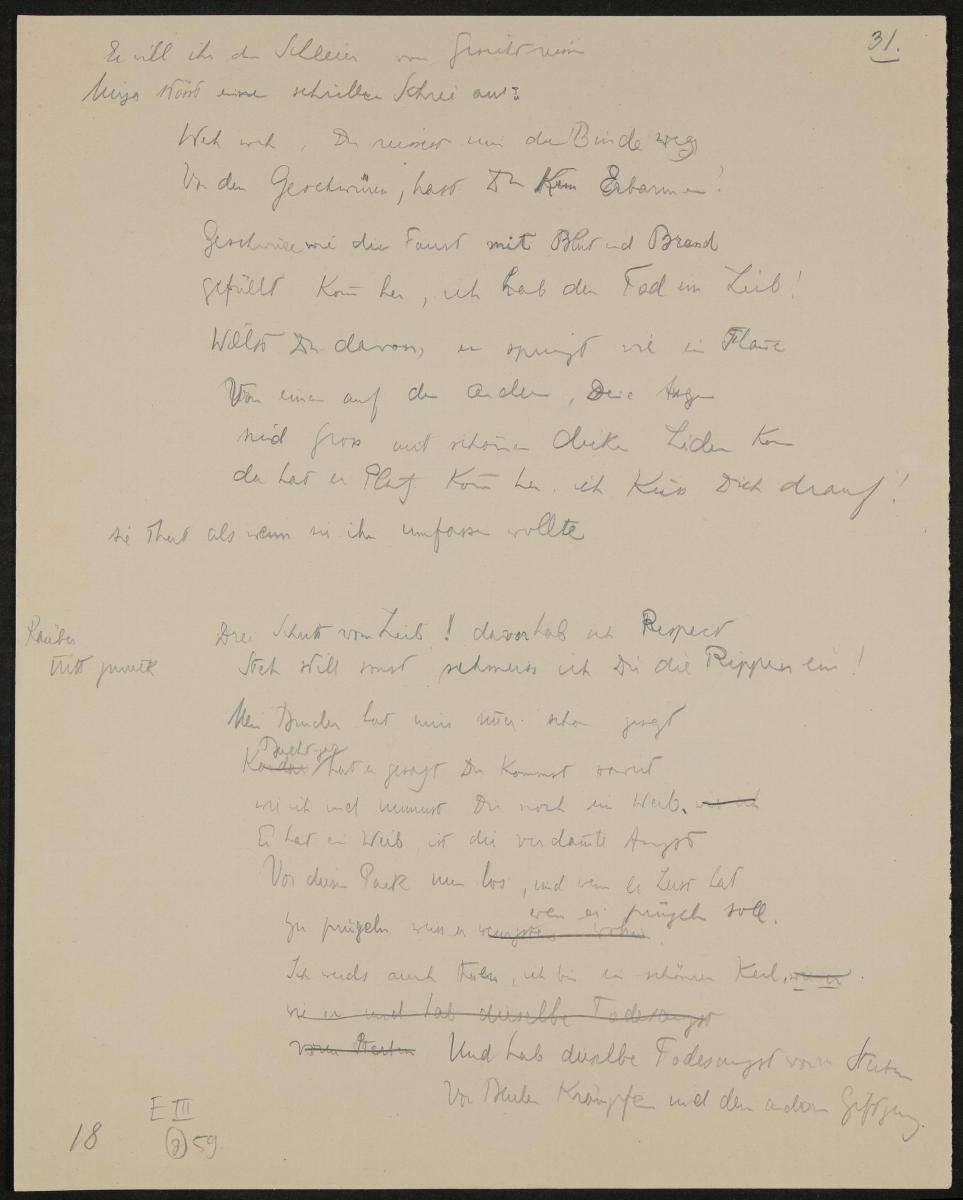 31.
Er will ihr den Schleier vom Gesicht
stösst einen schrillen Schrei aus:
Weh weh, Du reisst mir die Binde weg
Von den Geschwüren, hast Du Kein Erbarmen!
Geschwüre wie die Faust mit Blut und Brand
gefüllt Kom̅ her, ich hab den Tod im Leib!
Willst Du davon, er springt wie ein Flam̅e
Von einem auf den andern, Deine Augen
sind gross mit schönen dicken Lidern Kom̅
da hat er Platz Kom̅ her, ich Küss Dich drauf!
sie thut als wenn sie ihn umfassen wollte
Räuber
tritt zurück
Drei Schritt vom Leib! davor hab ich Respect
Steh still sonst schmeiss ich Dir die Rippen ein!
Mein Bruder hat mirs schon gesagt
hat er gesagt Du Kommst
wie ich und nimmst Dir noch ein Weib.
Er hat ein Weib, ist die verdam̅te Angst
Vor diesem Pack nun los, und wenn er Lust hat
wen er prügeln soll.
Zu prügeln weiss er
Ich werds auch thuen, ich bin ein schöner Kerl,
wie er und hab dieselbe Todesangst
vorm Sterben Und hab dieselbe Todesangst vorm Sterben
Vor Beulen Krämpfen und dem andern
E III
18
59